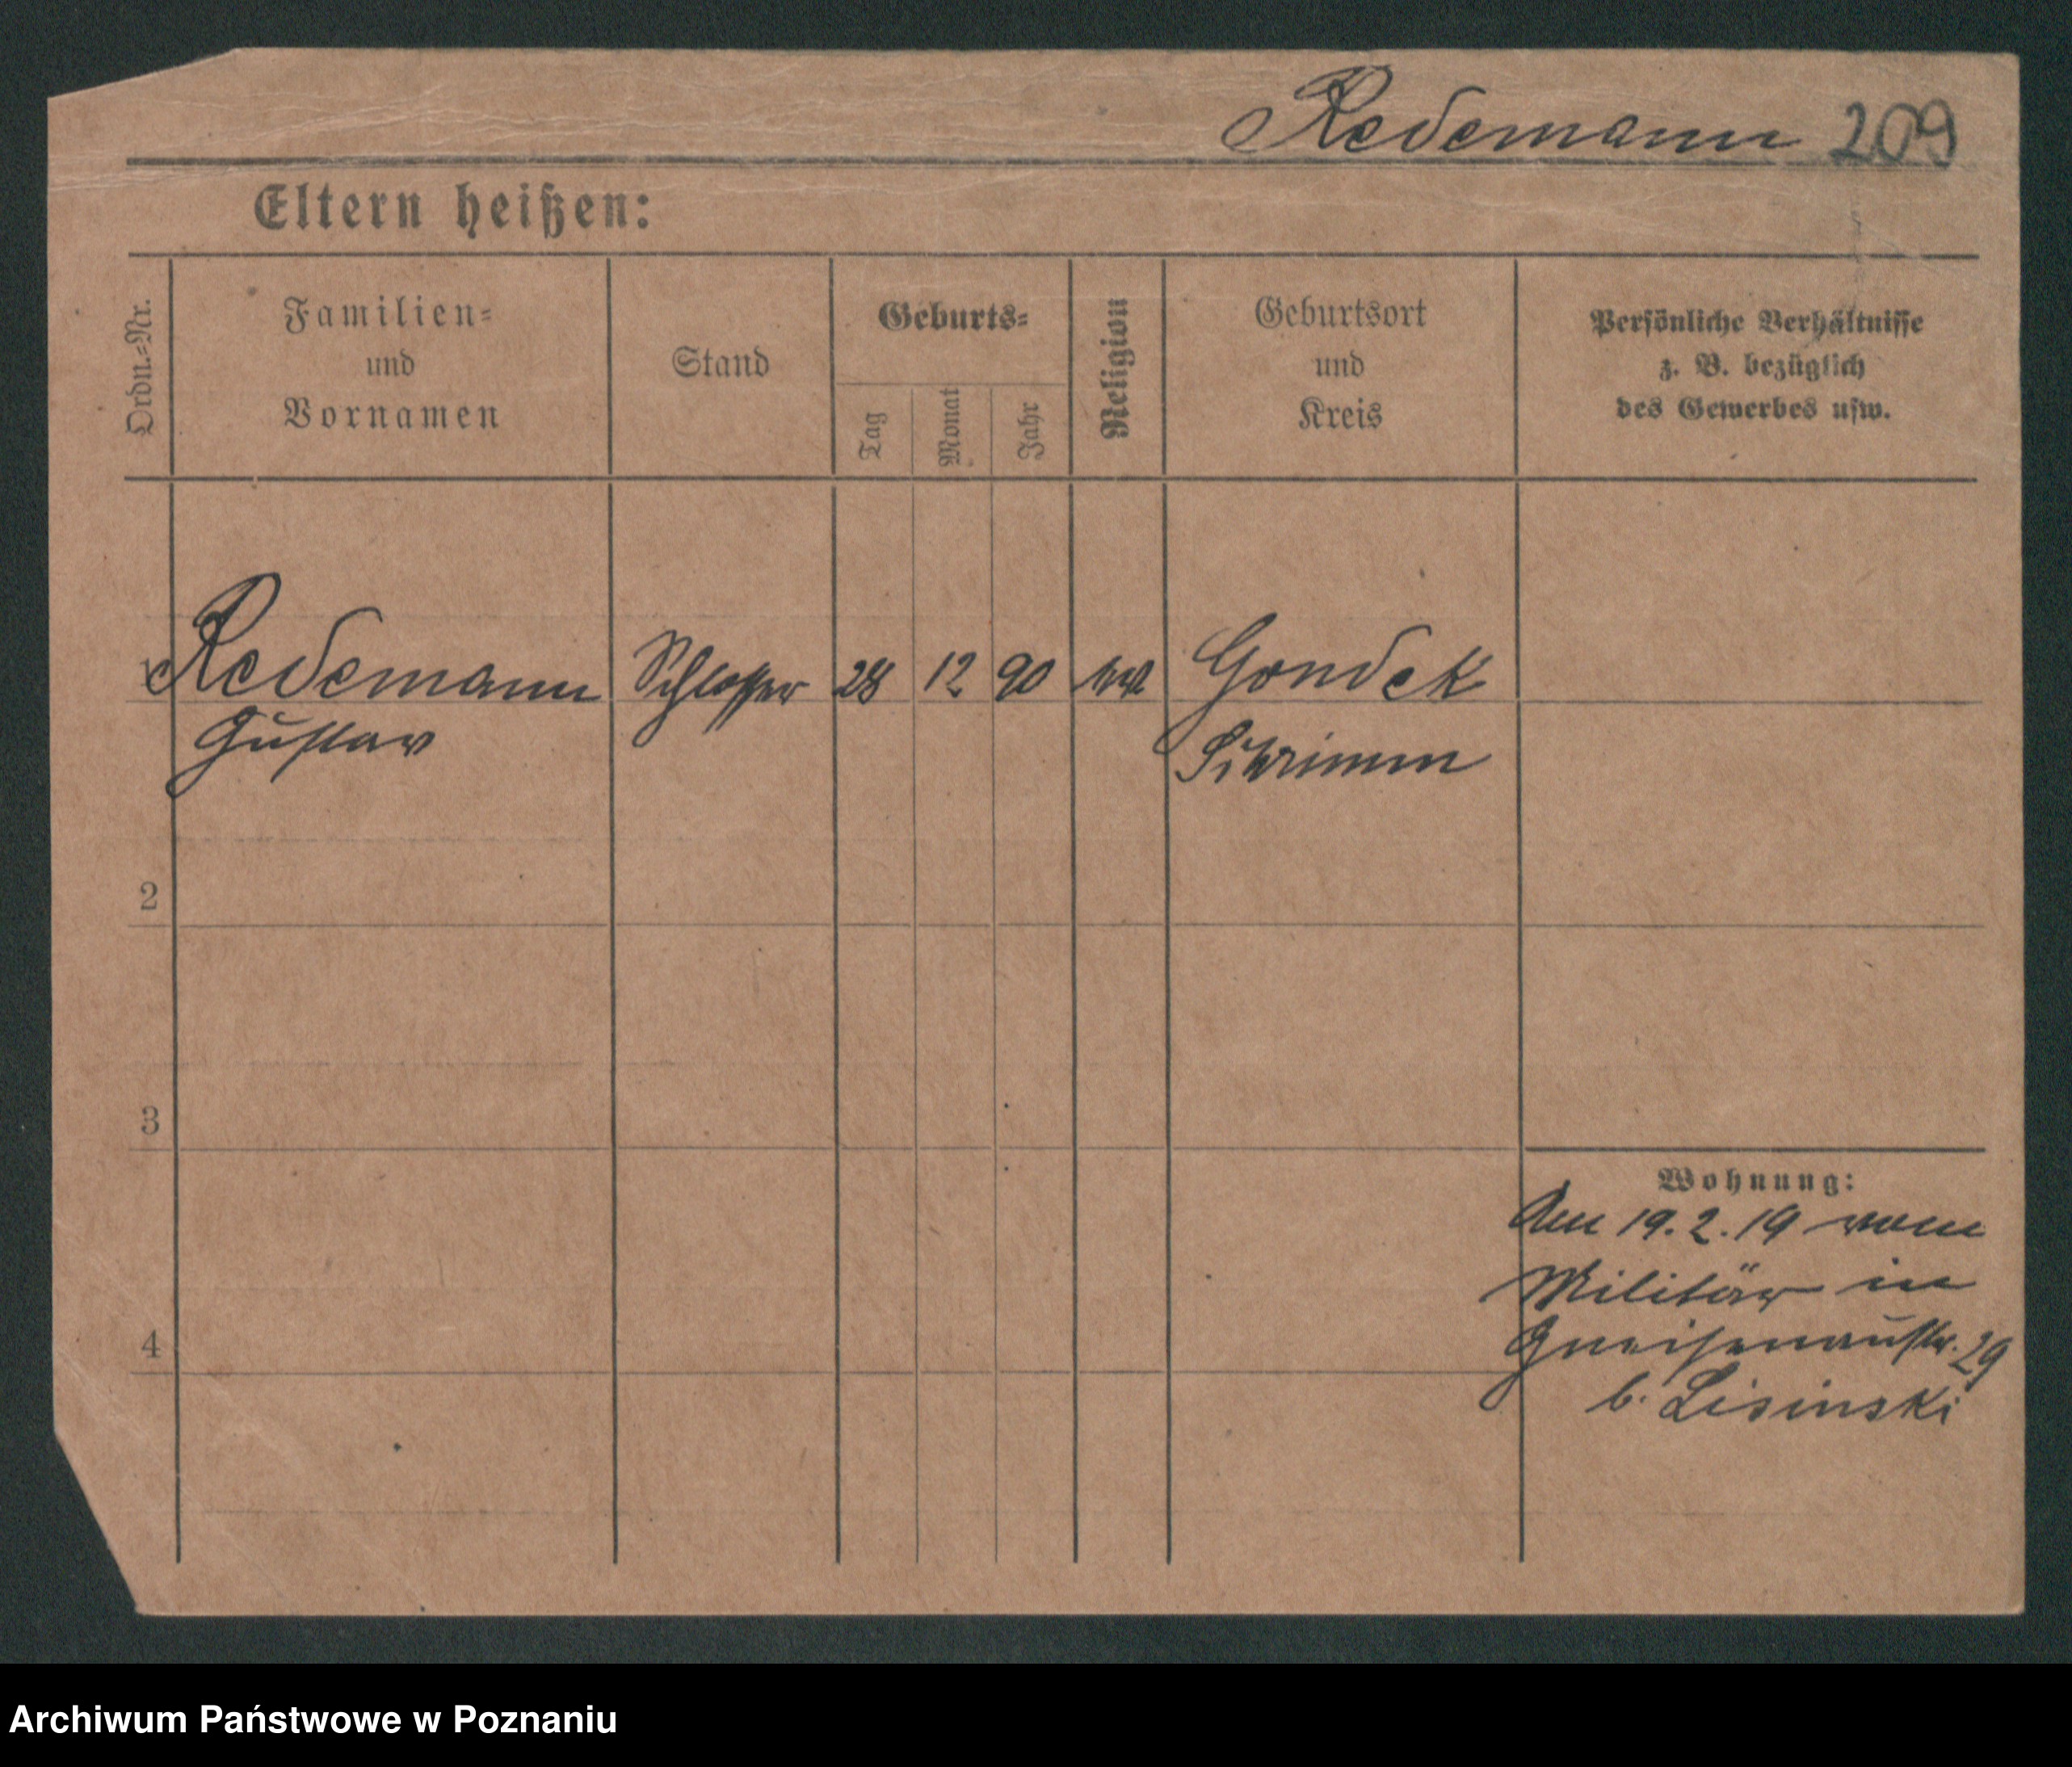 Redemann 209
Eltern heißen:
Ordn.-Nr.
Familien-
und
Vornamen
Stand
Geburts-
Tag
Monat
Jahr
Religion
Geburtsort
und
Kreis
Persönliche Verhältnisse
z. B. bezüglich
des Gewerbes usw.
Redemann Schlosser 28 12 90 Gondek
Gustav Schrimm
2
3
Wohnung:
Am 19.2.19 vom
Militär in
4
Gneisenaustr. 29
b. Lisinski
Archiwum Państwowe w Poznaniu